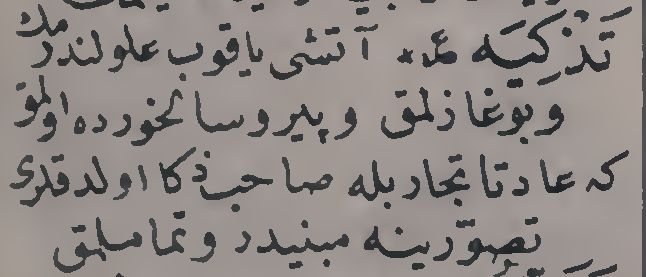 تذكیه ع‍م آتشی یاقوب علولندرمك
وبوغازلمق وپیر وسالخورده اولمق
كه عادتا تجاربله صاحب ذكا اولدقلری
تصوّرینه مبنیدر وتماملمق